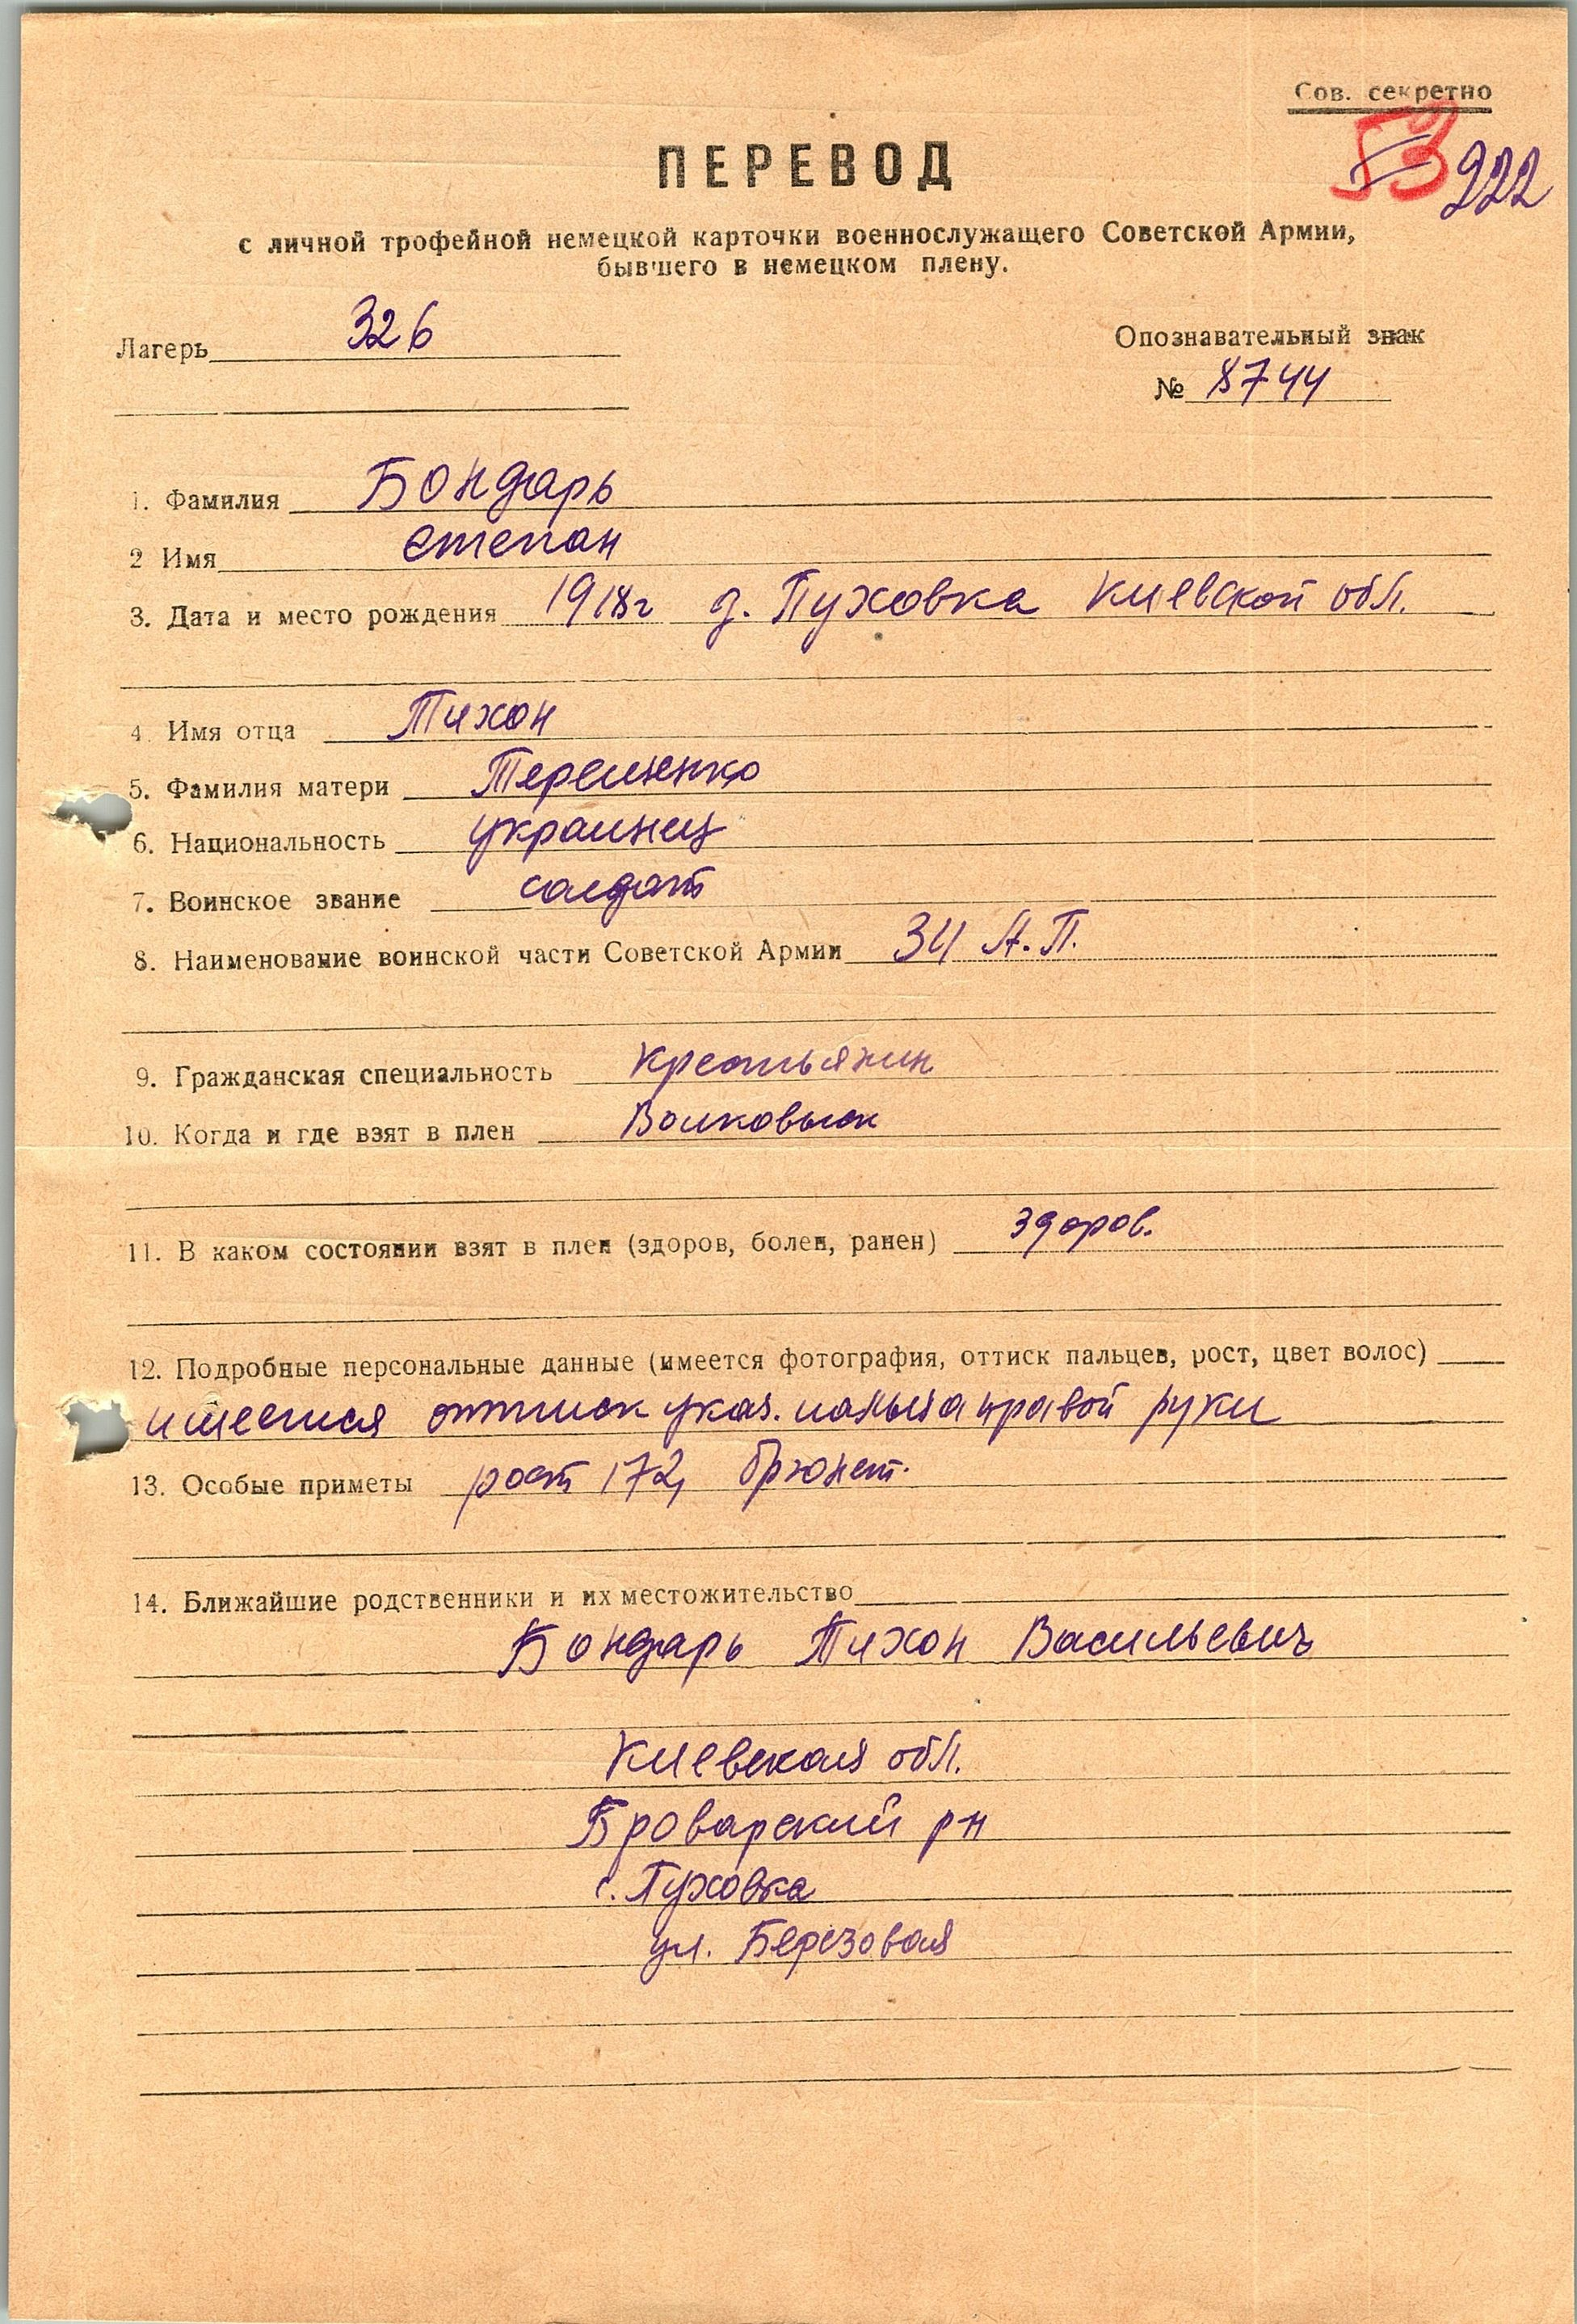 Сов. секретно
53 222
ПЕРЕВОД
с личной трофейной немецкой карточки военнослужащего Советской Армии,
бывшего в немецком плену.
Лагерь 326
Опознавательный знак
№ 8744
1. Фамилия Бондарь
2 Имя Степан
3. Дата и место рождения 1918г д. Пуховка Киевской обл.
4. Имя отца Тихон
5. Фамилия матери Терещенко
6. Национальность украинец
7. Воинское звание солдат
8. Наименование воинской части Советской Армии 34 А.П.
9. Гражданская специальность Крестьянин
10. Когда и где взят в плен Волковыск
11. В каком состоянии взят в плен (здоров, болен, ранен) здоров.
12. Подробные персональные данные (имеется фотография, оттиск пальцев, рост, цвет волос)
имеется оттиск указ. пальца правой руки
13. Особые приметы рост 172, брюнет.
14. Ближайшие родственники и их местожительство
Бондарь Тихон Васильевич
Киевская обл.
Броварский рн
с. Пуховка
ул. Березовая